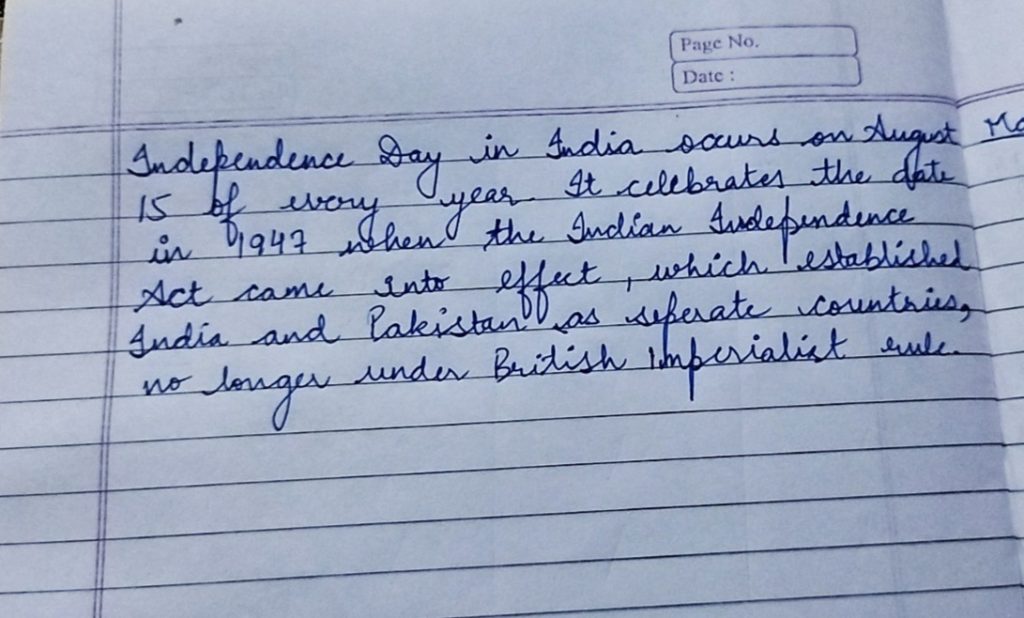 Page No.
Date :
Independence Day in India occurs on August
15 of every year. It celebrates the date
in 1947 when the Indian Independence
Act came into effect, which established
India and Pakistan as seperate countries,
no longer under British imperialist rule.